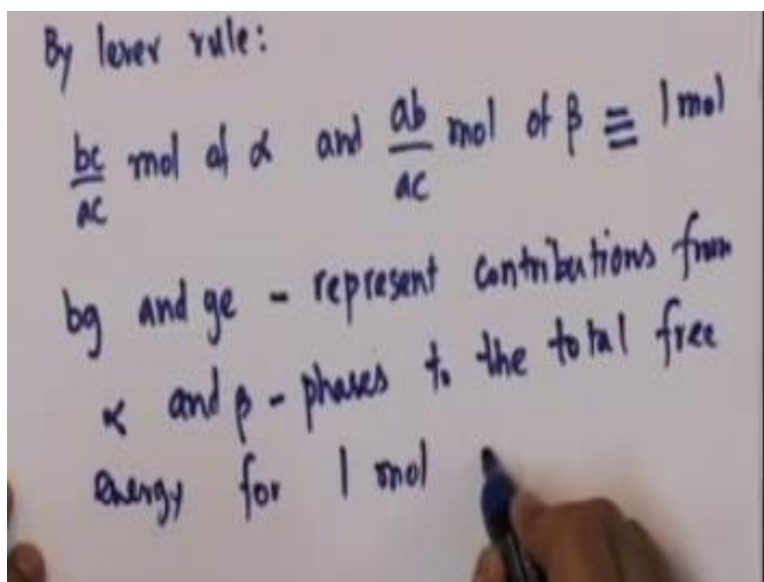 By lever rule:
bc/ac mol of α and ab/ac mol of β ≡ 1 mol
bg and ge - represent contributions from
α and β - phases to the total free
energy for 1 mol